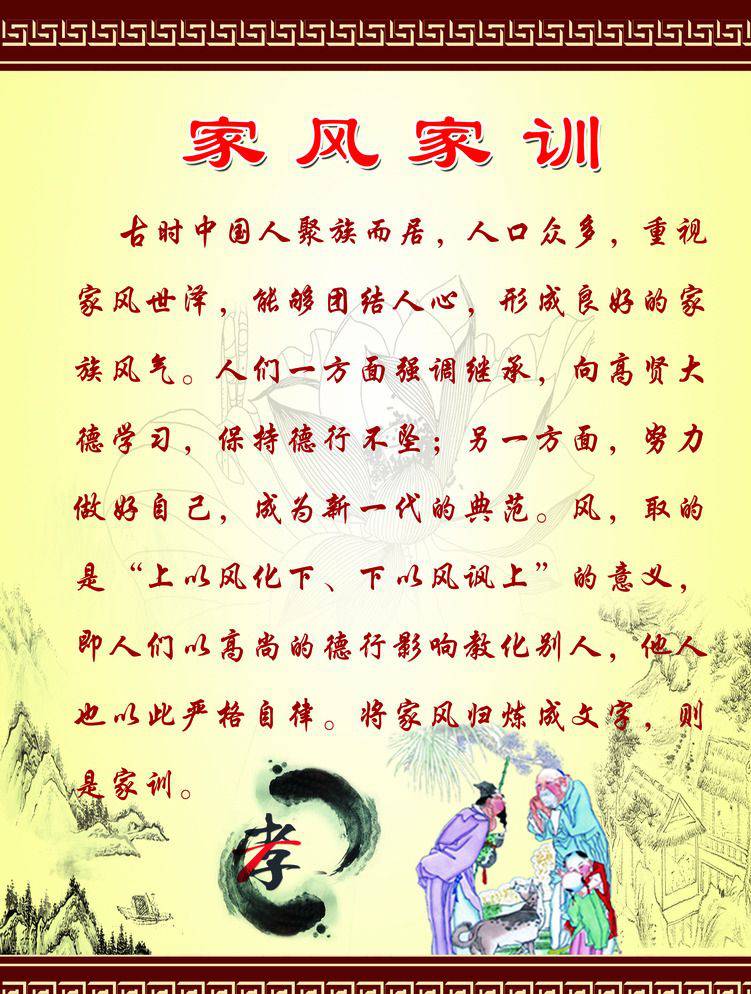 家风家训
古时中国人聚族而居，人口众多，重视
家风世泽，能够团结人心，形成良好的家
族风气。人们一方面强调继承，向高贤大
德学习，保持德行不坠；另一方面，努力
做好自己，成为新一代的典范。风，取的
是“上以风化下、下以风讽上”的意义，
即人们以高尚的德行影响教化别人，他人
也以此严格自律。将家风归炼成文字，则
是家训。
孝